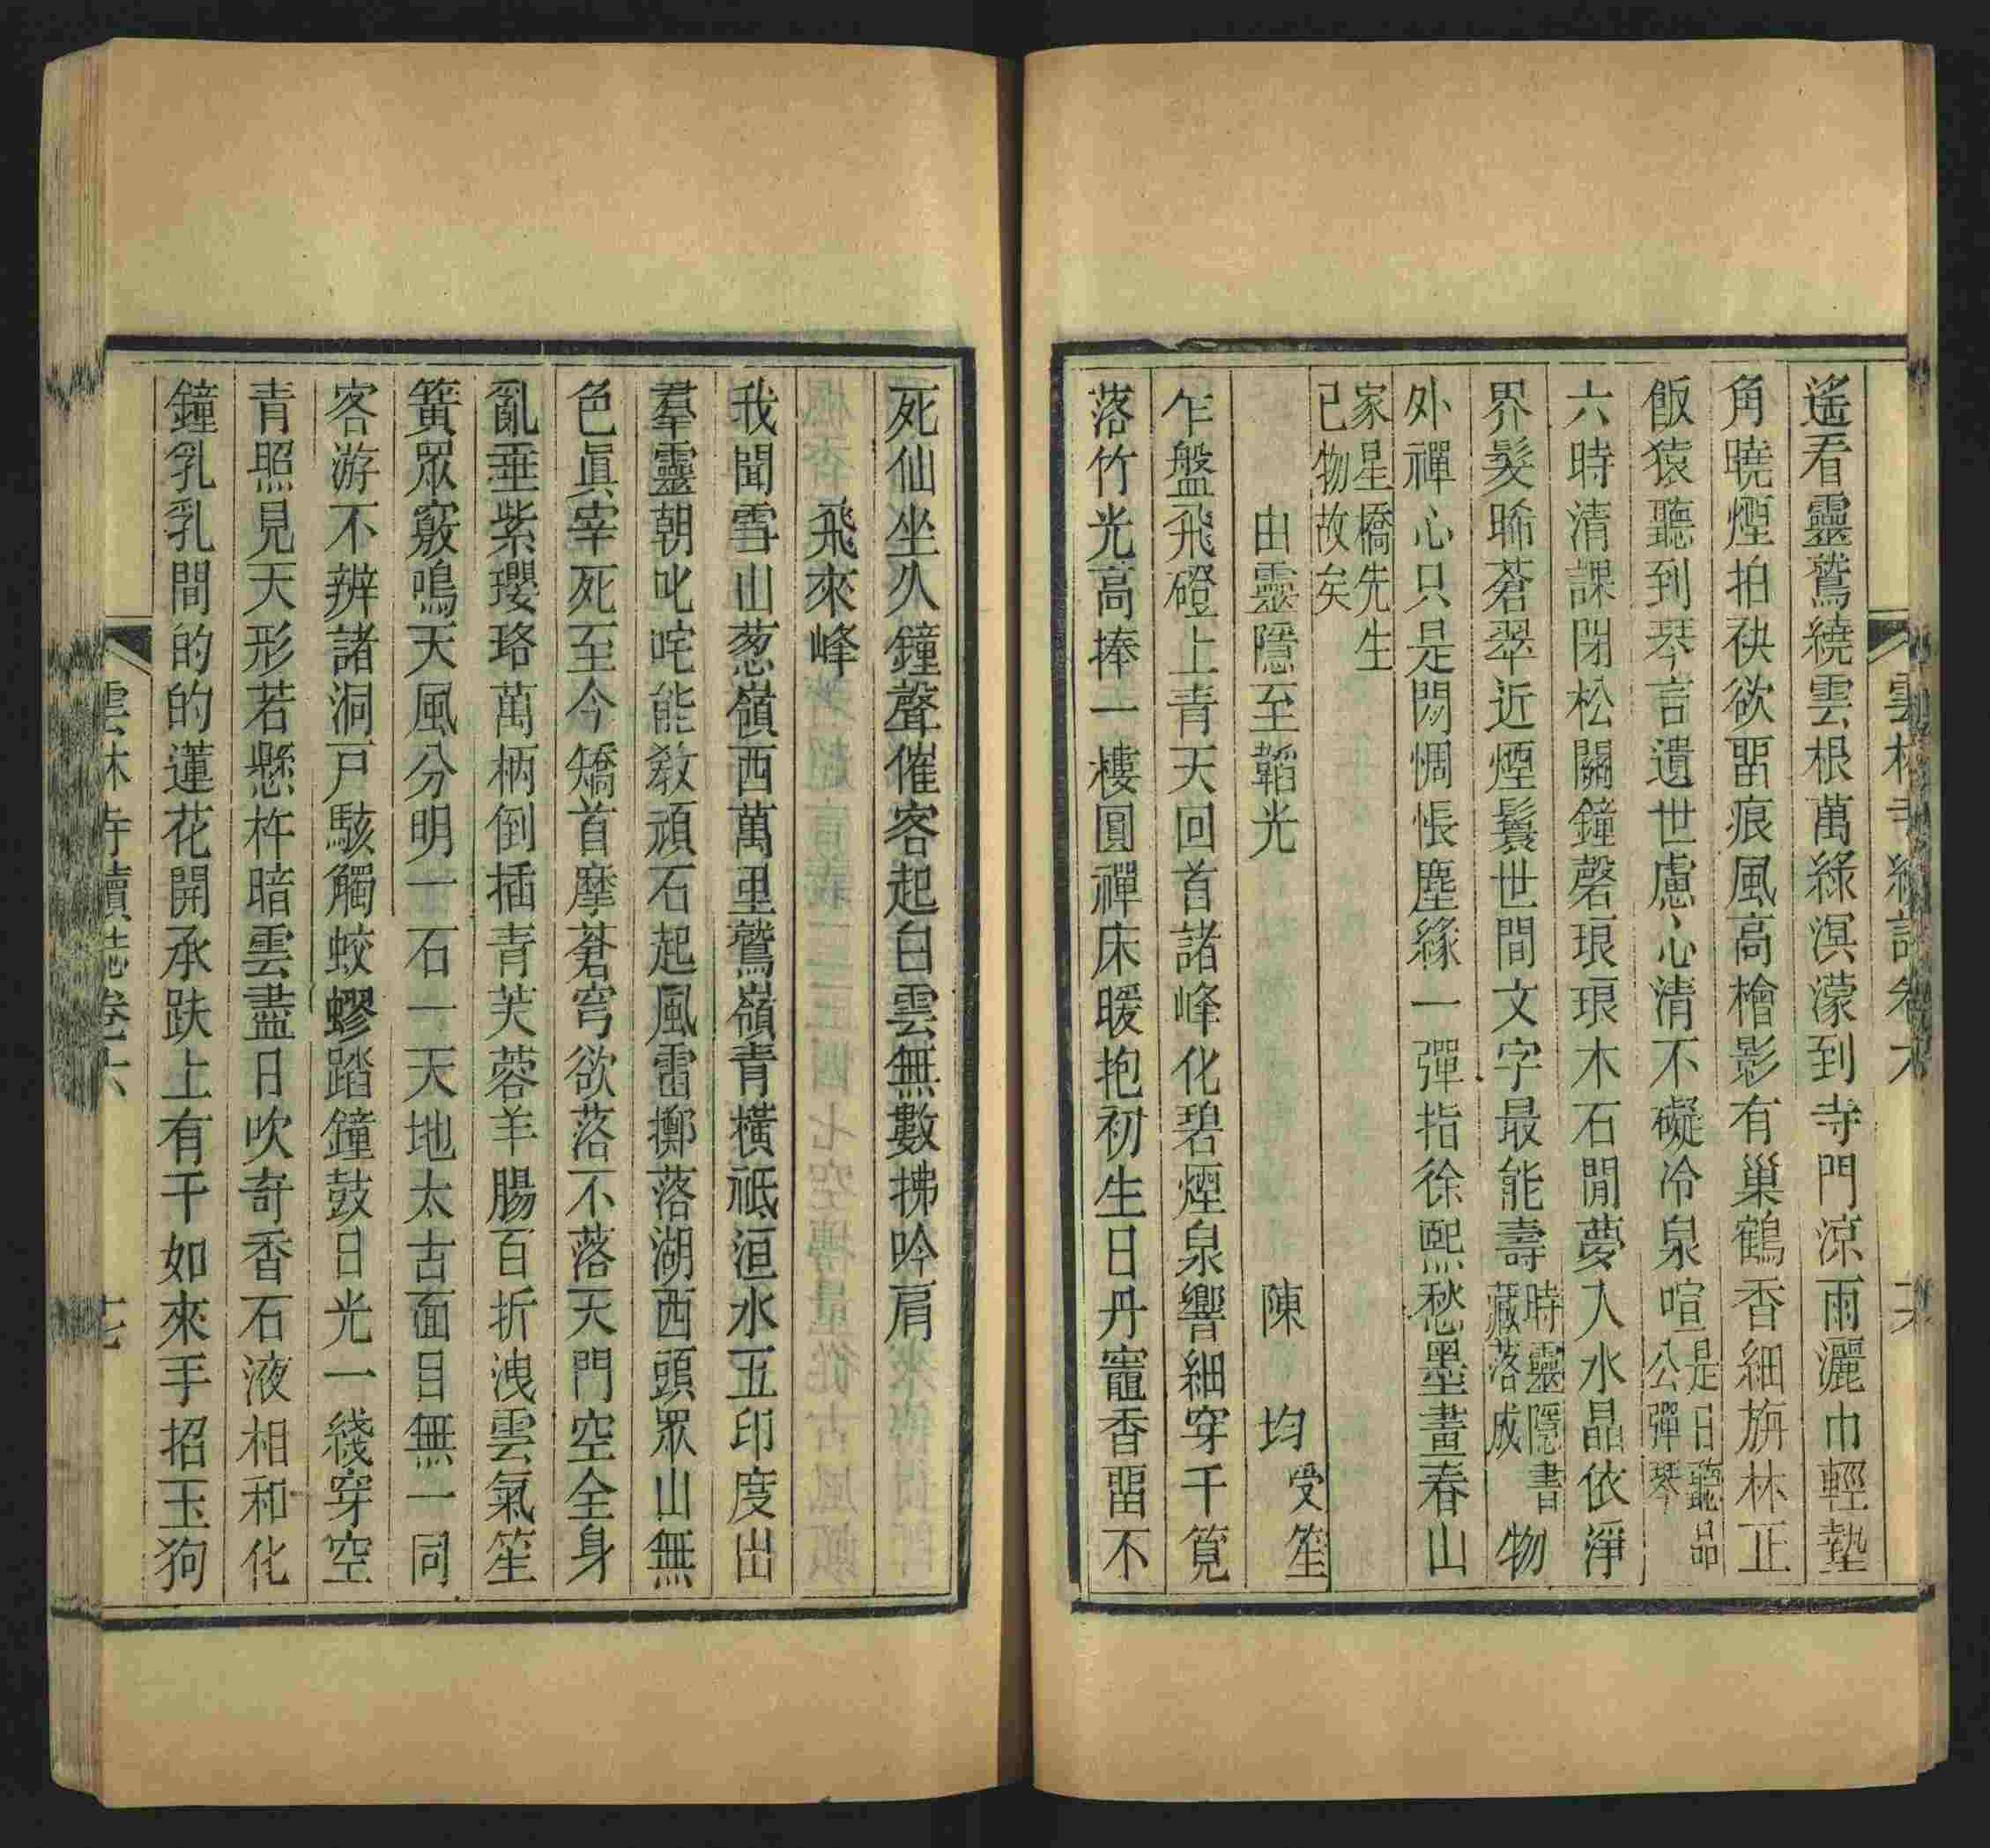 雲林寺續誌卷六
遙看靈鷲繞雲根萬綠溟濛到寺門涼雨灑巾輕墊
角曉煙拍袂欲畱痕風高檜影有巢鶴香細旃林正
飯猿聽到琴言遺世慮心清不礙冷泉喧是日聽品公彈琴
六時清課閉松關鐘磬琅琅木石閒夢入水晶依淨
界髮晞蒼翠近煙鬟世間文字最能壽時靈隱書藏落成物
外禪心只是閑惆悵塵緣一彈指徐熙愁墨畫春山
家星橋先生已物故矣
由靈隱至韜光 陳 均受笙
乍盤飛磴上青天回首諸峰化碧煙泉響細穿千筧
落竹光高捧一樓圓禪床暖抱初生日丹竈香畱不
死仙坐久鐘聲催客起白雲無數拂吟肩
飛來峰
我聞雪山葱嶺西萬里鷲嶺青橫祇洹水五印度出
羣靈朝叱咤能教頑石起風雷擲落湖西頭眾山無
色眞宰死至今矯首摩蒼穹欲落不落天門空全身
亂垂紫瓔珞萬柄倒插青芙蓉羊腸百折洩雲氣笙
簧眾竅鳴天風分明一石一天地太古面目無一同
客游不辨諸洞戸駭觸蛟蟉踏鐘鼓日光一綫穿空
青照見天形若懸杵暗雲盡日吹奇香石液相和化
鐘乳乳間的的蓮花開承趺上有千如來手招玉狗
雲林寺續誌卷六
十七